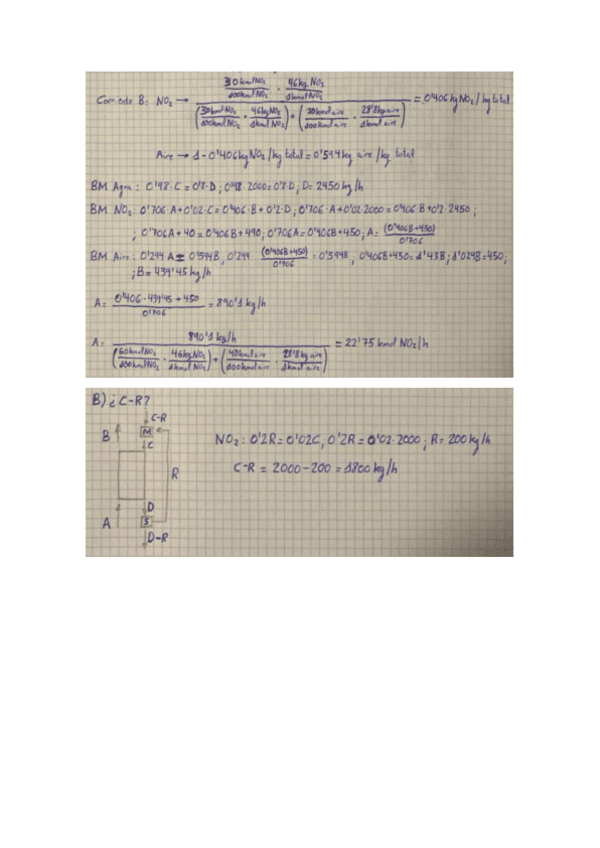 Corriente B: NO₂ → (30 kmol NO₂/100 kmol NO₂ · 46 kg NO₂/1 kmol NO₂) / ((30 kmol NO₂/100 kmol NO₂ · 46 kg NO₂/1 kmol NO₂) + (70 kmol aire/100 kmol aire · 28'8 kg aire/1 kmol aire)) = 0'406 kg NO₂/kg total
Aire → 1-0'406 kg NO₂/kg total = 0'594 kg aire/kg total
BM Agua: 0'98·C = 0'8·D; 0'98·2000 = 0'8·D; D = 2450 kg/h
BM NO₂: 0'706·A + 0'02·C = 0'406·B + 0'2·D; 0'706·A + 0'02·2000 = 0'406·B + 0'2·2450;
; 0'706A + 40 = 0'406B + 490; 0'706A = 0'406B + 450; A = (0'406B+450)/0'706
BM Aire: 0'294 A = 0'594B; 0'294· (0'406B+450)/0'706 = 0'594B; 0'406B+450 = 1'43B; 1'024B = 450;
; B = 439'45 kg/h
A = (0'406·439'45 + 450)/0'706 = 890'1 kg/h
A = 890'1 kg/h / ((60 kmol NO₂/100 kmol NO₂ · 46 kg NO₂/1 kmol NO₂) + (40 kmol aire/100 kmol aire · 28'8 kg aire/1 kmol aire)) = 22'75 kmol NO₂/h
B) ¿C-R?
C-R
B M
C
NO₂: 0'2R = 0'02C; 0'2R = 0'02·2000; R = 200 kg/h
R
C-R = 2000-200 = 1800 kg/h
D
A S
D-R